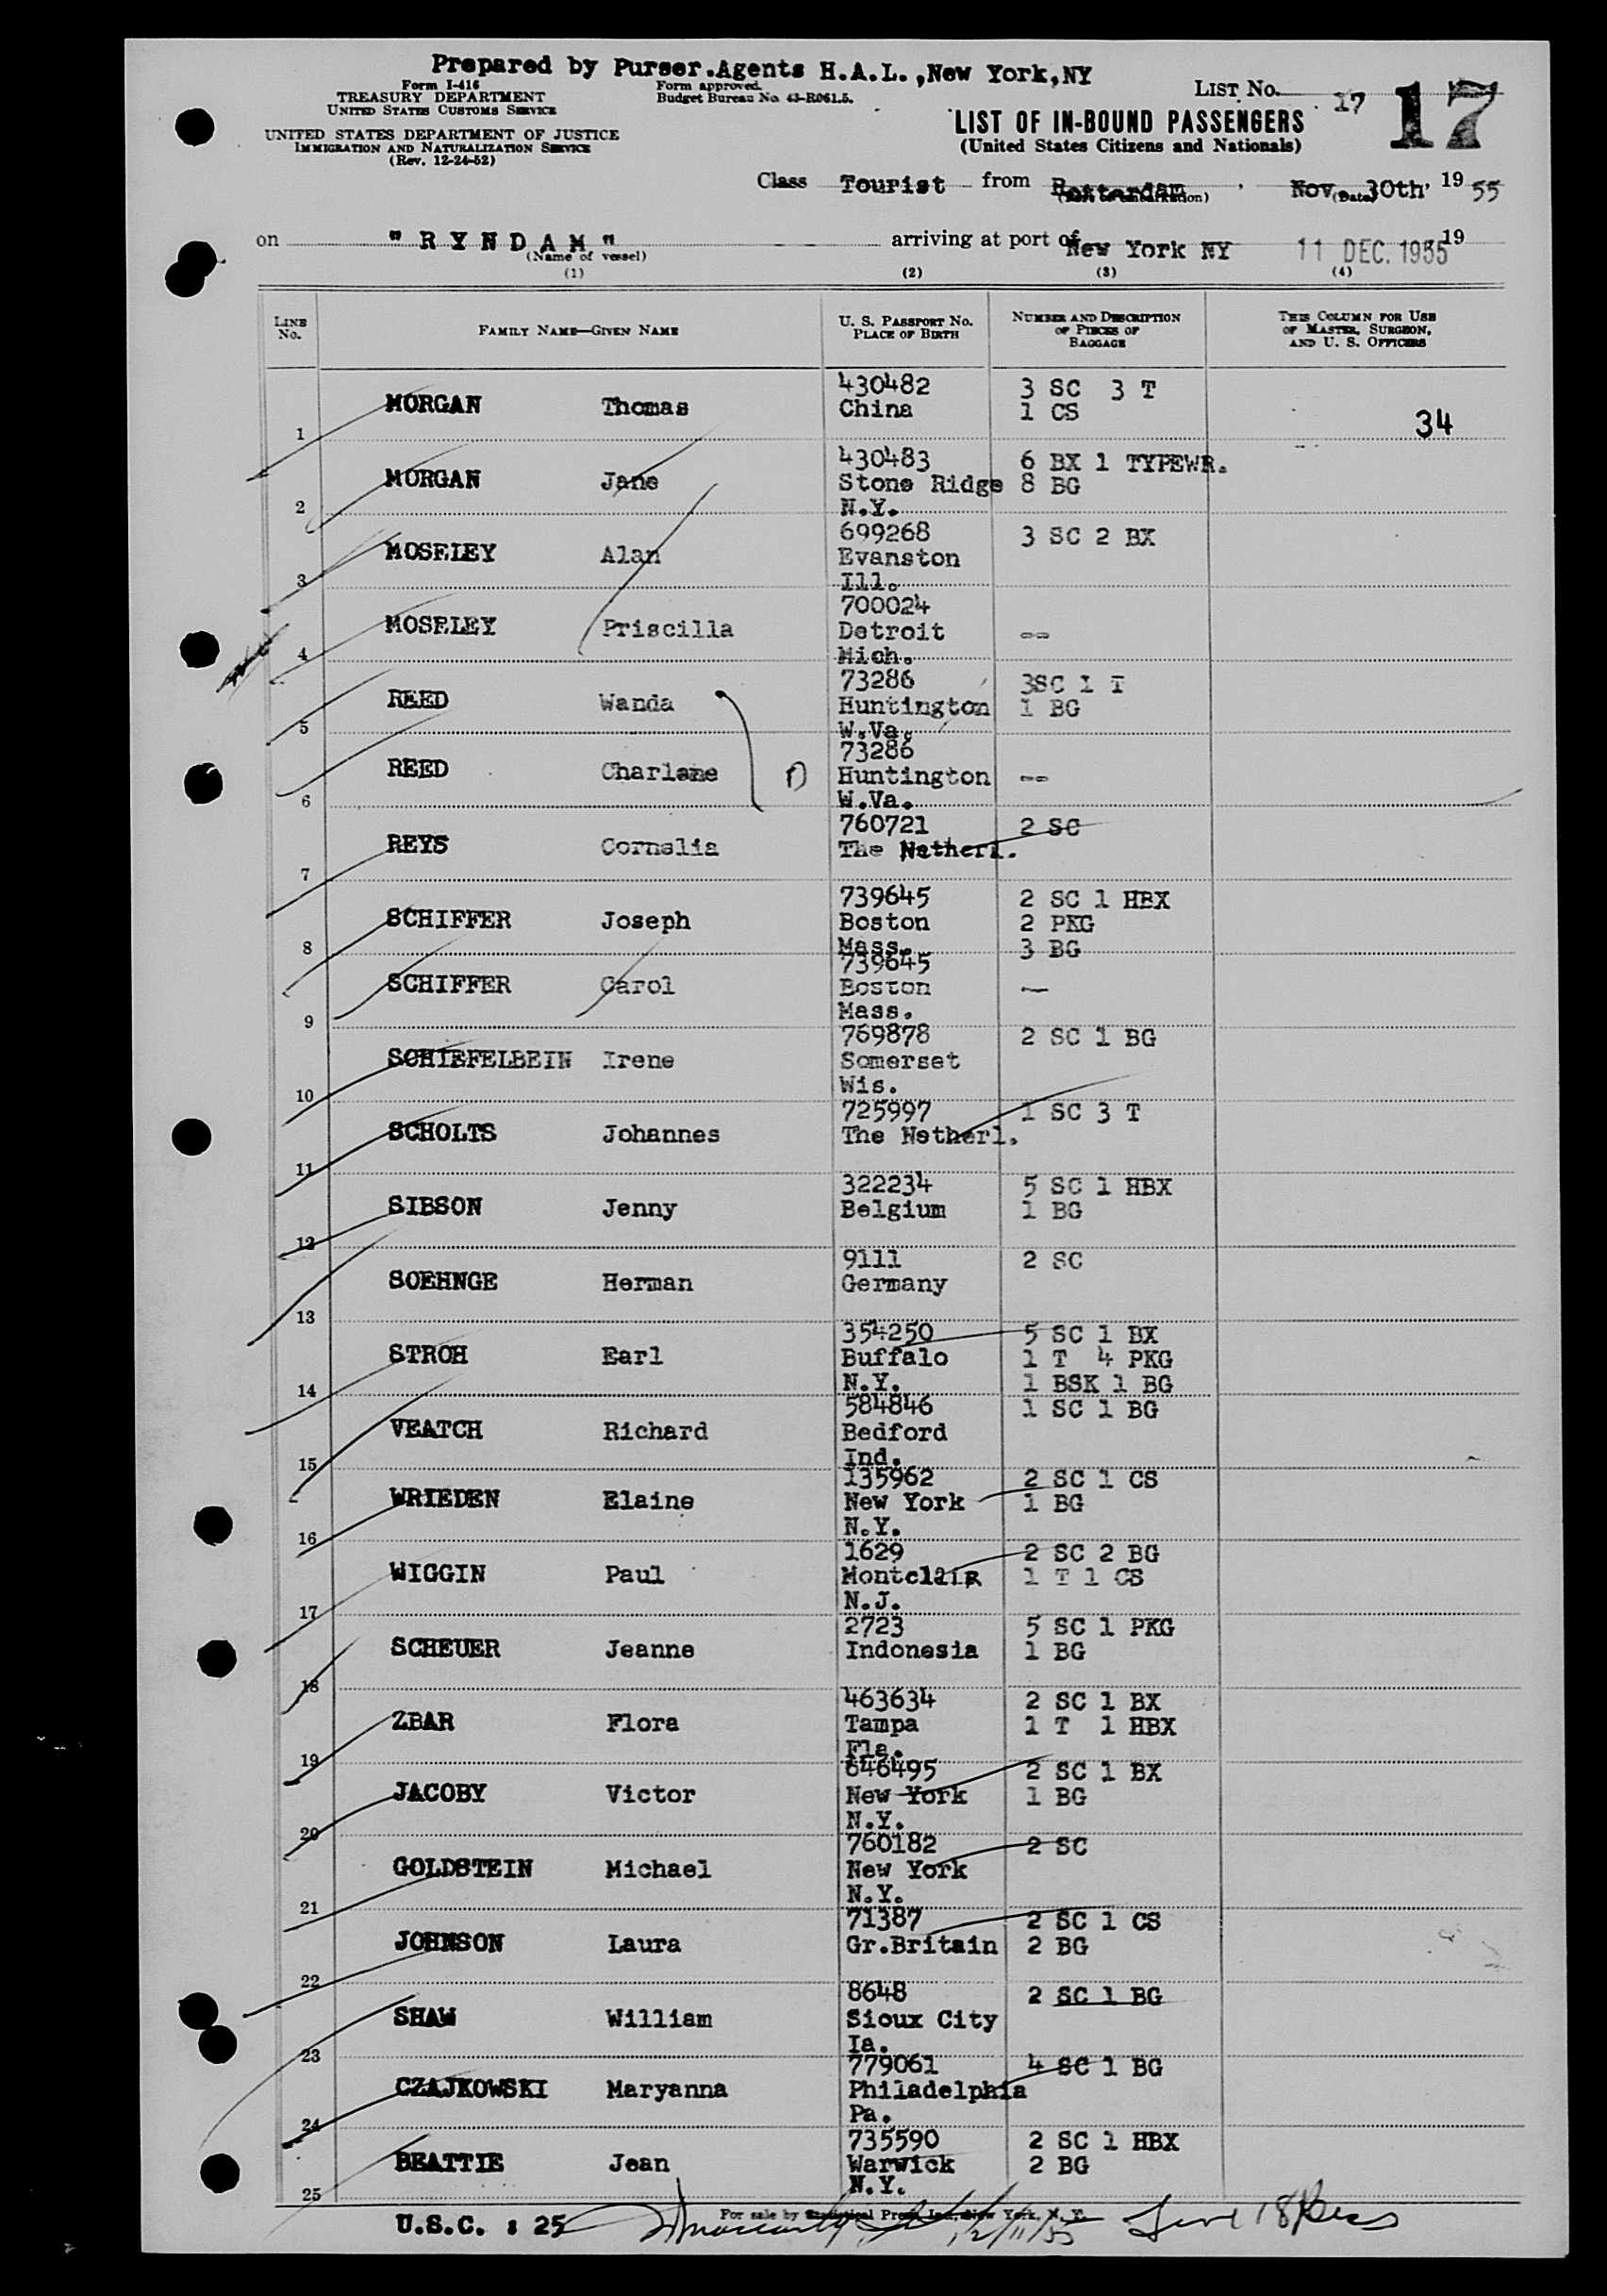 Prepared by Purser.Agents H.A.L.,New York,NY
Form I-416
TREASURY DEPARTMENT
UNITED STATES CUSTOMS SERVICE
Form approved.
Budget Bureau No. 43-R061.5.
LIST NO. 17 17
UNITED STATES DEPARTMENT OF JUSTICE
IMMIGRATION AND NATURALIZATION SERVICE
(Rev. 12-24-52)
LIST OF IN-BOUND PASSENGERS
(United States Citizens and Nationals)
Class Tourist from Rotterdam, Nov. 30th, 19 55
(Port of embarkation) (Date)
on "RYNDAM" arriving at port of New York NY 11 DEC. 1955 19
(Name of vessel)
(1) (2) (3) (4)
LINE NO.
FAMILY NAME—GIVEN NAME
U. S. PASSPORT NO.
PLACE OF BIRTH
NUMBER AND DESCRIPTION
OF PIECES OF
BAGGAGE
THIS COLUMN FOR USE
OF MASTER, SURGEON,
AND U. S. OFFICERS
430482 3 SC 3 T
MORGAN Thomas China 1 CS 34
1
430483 6 BX 1 TYPEWR.
MORGAN Jane Stone Ridge 8 BG
2 N.Y.
699268 3 SC 2 BX
MOSELEY Alan Evanston
3 Ill.
700024
MOSELEY Priscilla Detroit --
4 Mich.
73286 3SC 1 T
REED Wanda Huntington 1 BG
5 W.Va.
73286
REED Charlene Huntington --
6 W.Va.
760721 2 SC
REYS Cornelia The Netherl.
7
739645 2 SC 1 HBX
SCHIFFER Joseph Boston 2 PKG
8 Mass. 3 BG
739645
SCHIFFER Carol Boston —
9 Mass.
769878 2 SC 1 BG
SCHIEFELBEIN Irene Somerset
10 Wis.
725997 1 SC 3 T
SCHOLTS Johannes The Netherl.
11
322234 5 SC 1 HBX
SIBSON Jenny Belgium 1 BG
12
9111 2 SC
SOEHNGE Herman Germany
13
354250 5 SC 1 BX
STROH Earl Buffalo 1 T 4 PKG
14 N.Y. 1 BSK 1 BG
584846 1 SC 1 BG
VEATCH Richard Bedford
15 Ind.
135962 2 SC 1 CS
WRIEDEN Elaine New York 1 BG
16 N.Y.
1629 2 SC 2 BG
WIGGIN Paul Montclair 1 T 1 CS
17 N.J.
2723 5 SC 1 PKG
SCHEUER Jeanne Indonesia 1 BG
18
463634 2 SC 1 BX
ZBAR Flora Tampa 1 T 1 HBX
19 Fla.
646495 2 SC 1 BX
JACOBY Victor New York 1 BG
20 N.Y.
760182 2 SC
GOLDSTEIN Michael New York
21 N.Y.
71387 2 SC 1 CS
JOHNSON Laura Gr.Britain 2 BG
22
8648 2 SC 1 BG
SHAW William Sioux City
23 Ia.
779061 4 SC 1 BG
CZAJKOWSKI Maryanna Philadelphia
24 Pa.
735590 2 SC 1 HBX
BEATTIE Jean Warwick 2 BG
25 N.Y.
For sale by Statistical Press, Inc., New York, N. Y.
U.S.C. : 25 12/11/55